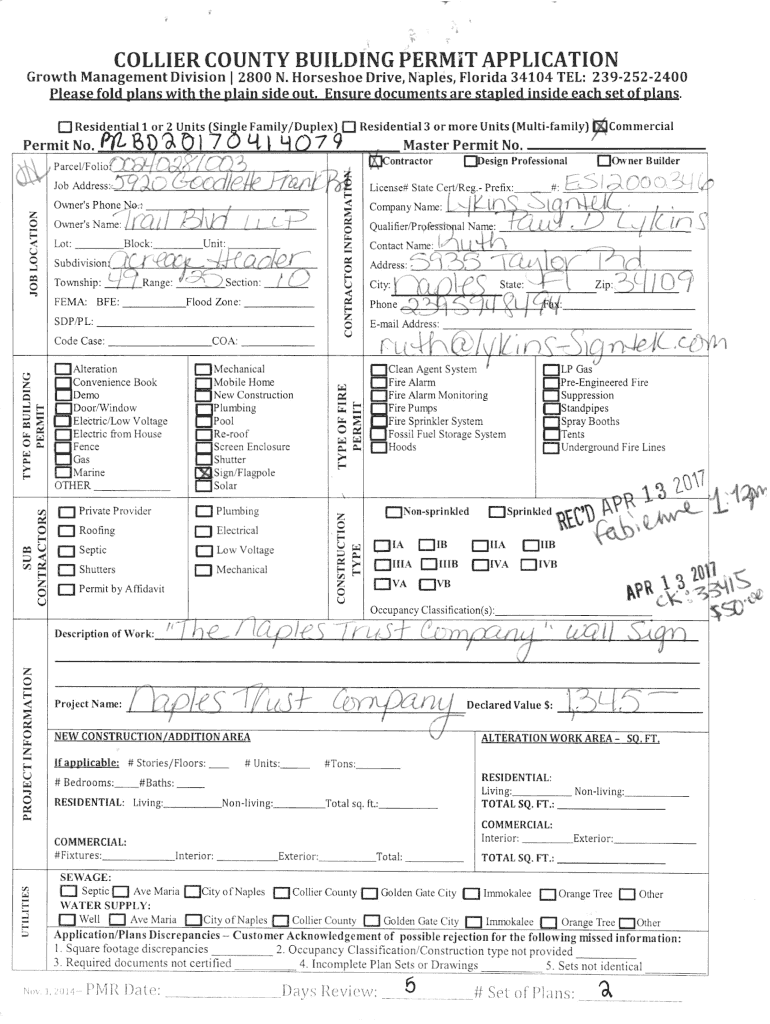 COLLIER COUNTY BUILDING PERMIT APPLICATION
Growth Management Division | 2800 N. Horseshoe Drive, Naples, Florida 34104 TEL: 239-252-2400
Please fold plans with the plain side out. Ensure documents are stapled inside each set of plans.
Residential 1 or 2 Units (Single Family/Duplex) Residential 3 or more Units (Multi-family) Commercial
Permit No. PRBD20170414079 Master Permit No.
JOB LOCATION
Parcel/Folio: 00240281003
Job Address: 5920 Goodlette Frank
Owner's Phone No.:
Owner's Name: Trail Blvd LLP
Lot: Block: Unit:
Subdivision: acreage Header
Township: 49 Range: 25 Section: 10
FEMA: BFE: Flood Zone:
SDP/PL:
Code Case: COA:
CONTRACTOR INFORMATION
Contractor Design Professional Owner Builder
License# State Cert/Reg.- Prefix: #: ES12000346
Company Name: Lykins Signtek
Qualifier/Professional Name: Paul D Lykins
Contact Name: Ruth
Address: 5935 Taylor Rd
City: Naples State: Fl Zip: 34109
Phone 2395948494 Fax:
E-mail Address:
ruth@lykins-signtek.com
TYPE OF BUILDING PERMIT
Alteration Mechanical
Convenience Book Mobile Home
Demo New Construction
Door/Window Plumbing
Electric/Low Voltage Pool
Electric from House Re-roof
Fence Screen Enclosure
Gas Shutter
Marine Sign/Flagpole
OTHER Solar
TYPE OF FIRE PERMIT
Clean Agent System LP Gas
Fire Alarm Pre-Engineered Fire
Fire Alarm Monitoring Suppression
Fire Pumps Standpipes
Fire Sprinkler System Spray Booths
Fossil Fuel Storage System Tents
Hoods Underground Fire Lines
SUB CONTRACTORS
Private Provider Plumbing
Roofing Electrical
Septic Low Voltage
Shutters Mechanical
Permit by Affidavit
CONSTRUCTION TYPE
Non-sprinkled Sprinkled
REC'D APR 13 2017 1:12pm
Fabienne
IA IB IIA IIB
IIIA IIIB IVA IVB
VA VB
APR 13 2017
CK: 33415
$50.00
Occupancy Classification(s):
PROJECT INFORMATION
Description of Work: "The Naples Trust Company" wall sign
Project Name: Naples Trust Company Declared Value $: 1,345-
NEW CONSTRUCTION/ADDITION AREA
If applicable: # Stories/Floors: # Units: #Tons:
# Bedrooms: #Baths:
RESIDENTIAL: Living: Non-living: Total sq. ft.:
COMMERCIAL:
#Fixtures: Interior: Exterior: Total:
ALTERATION WORK AREA – SQ. FT.
RESIDENTIAL:
Living: Non-living:
TOTAL SQ. FT.:
COMMERCIAL:
Interior: Exterior:
TOTAL SQ. FT.:
UTILITIES
SEWAGE:
Septic Ave Maria City of Naples Collier County Golden Gate City Immokalee Orange Tree Other
WATER SUPPLY:
Well Ave Maria City of Naples Collier County Golden Gate City Immokalee Orange Tree Other
Application/Plans Discrepancies – Customer Acknowledgement of possible rejection for the following missed information:
1. Square footage discrepancies 2. Occupancy Classification/Construction type not provided
3. Required documents not certified 4. Incomplete Plan Sets or Drawings 5. Sets not identical
Nov. 3, 2014 – PMR Date: Days Review: 5 # Set of Plans: 2